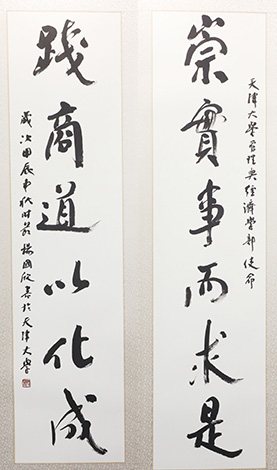 崇實事而求是
天津大學管理與經濟學部使命
踐商道以化成
歲次甲辰中秋時節 楊國欣書於天津大學